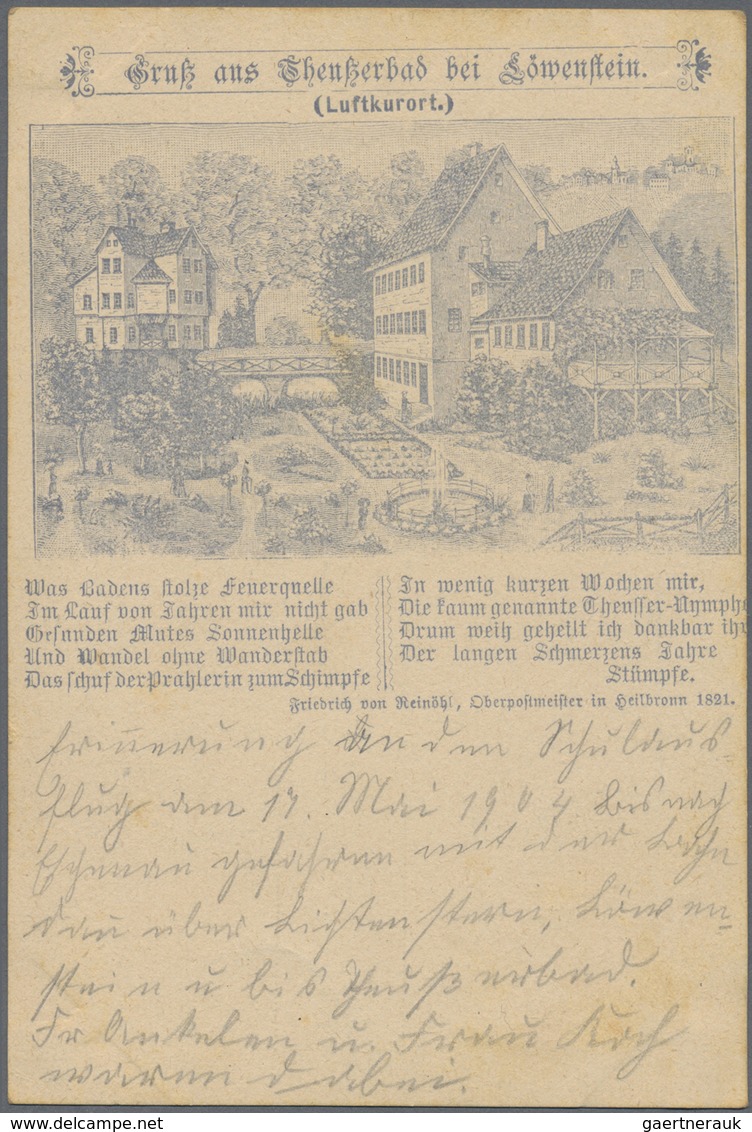 Gruß aus Theußerbad bei Löwenstein.
(Luftkurort.)
Was Badens stolze Feuerquelle
Im Lauf von Jahren mir nicht gab
Gesunden Mutes Sonnenhelle
Und Wandel ohne Wanderstab
Das schuf der Prahlerin zum Schimpfe
In wenig kurzen Wochen mir,
Die kaum genannte Theusser-Nymphe
Drum weih geheilt ich dankbar ihr
Der langen Schmerzens Jahre
Stümpfe.
Friedrich von Reinöhl, Oberpostmeister in Heilbronn 1821.
Erinnerung an den Schulaus
flug am 17. Mai 1904 bis nach
Eschenau gefahren mit der Bahn
dan über Lichtenstern, Löwen-
stein u bis Theußerbad.
Fr Ankelen u. Frau Koch
waren dabei.
delcampe.net
gaertnerauk